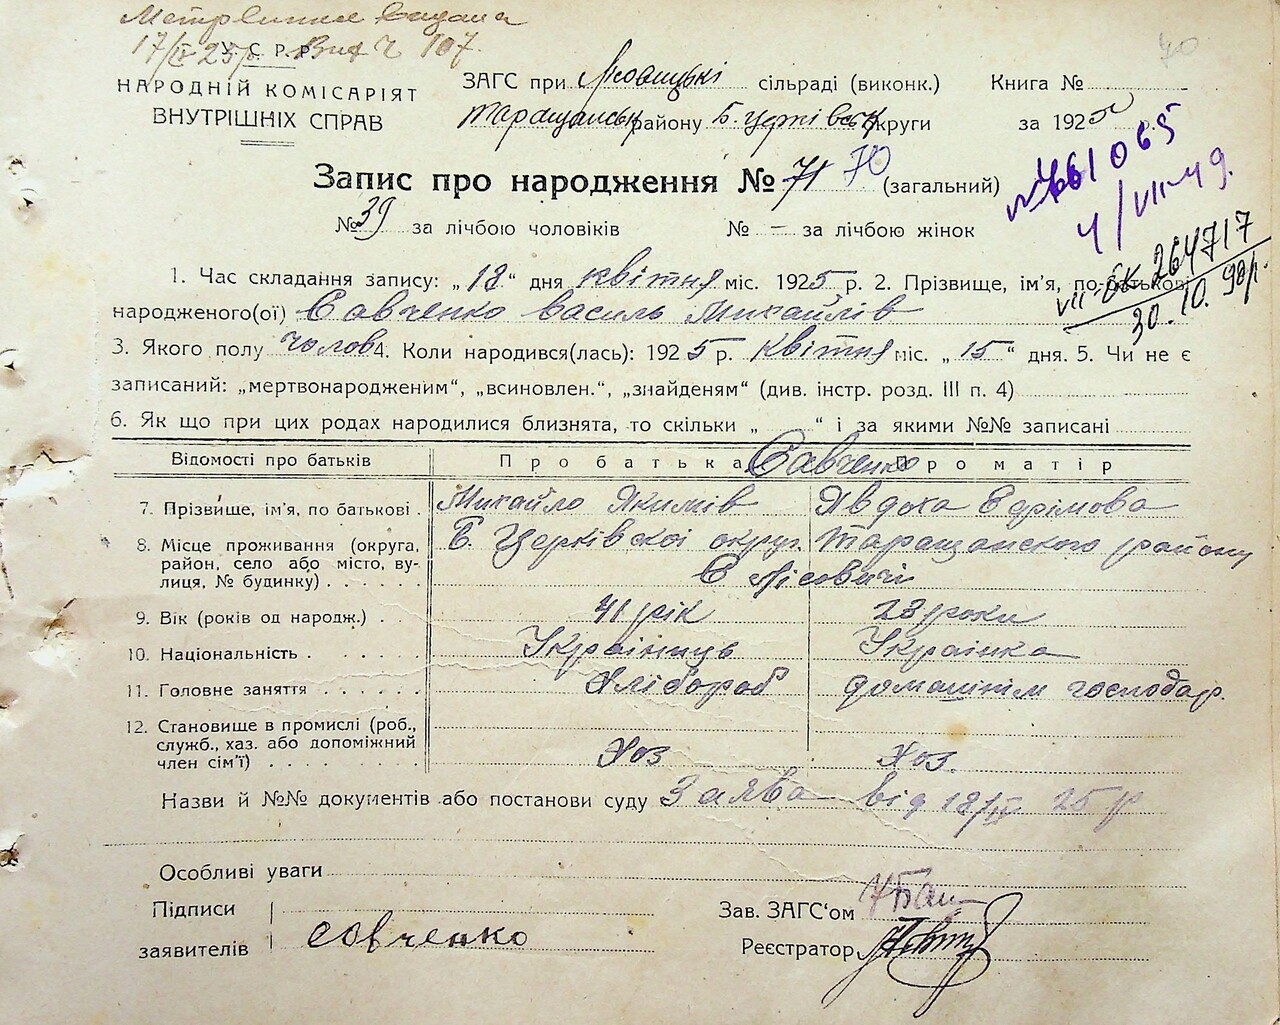 Метрична видана
17/IV 25 р. Вид Ч 107.
У. С. Р. Р.
НАРОДНІЙ КОМІСАРІЯТ
ВНУТРІШНІХ СПРАВ
ЗАГС при Лісовицькі сільраді (виконк.) Книга №
Таращанськ району Б. Церківськ округи за 1925 р.
40
Запис про народження № 71 70 (загальний)
№ 39 за лічбою чоловіків № – за лічбою жінок
№ 661065
4/VII-49.
VII-БК 264717
30.10.90р.
1. Час складання запису: „18“ дня квітня міс. 1925 р. 2. Прізвище, ім'я, по-батькові
народженого(ої) Савченко Василь Михайлів
3. Якого полу чолов 4. Коли народився(лась): 1925 р. Квітня міс. „15“ дня. 5. Чи не є
записаний: „мертвонародженим“, „всиновлен.“, „знайденям“ (див. інстр. розд. III п. 4)
6. Як що при цих родах народилися близнята, то скільки „ “ і за якими №№ записані
Відомості про батьків Про батька Про матір
Савченко
7. Прізвище, ім'я, по батькові . Михайло Якимів Явдоха Єфрімова
8. Місце проживання (округа, Б. Церківскоі округ. Таращанского району
район, село або місто, ву-
лиця, № будинку) . . . . . С Лісовичі
9. Вік (років од народж.) . 41 рік 28 роки
10. Національність . . . . . Українець Українка
11. Головне заняття . . . . . . Хлібороб домашнім господар.
12. Становище в промислі (роб.,
служб., хаз. або допоміжний
член сім'ї) . . . . . . . . Хоз Хоз.
Назви й №№ документів або постанови суду Заява від 18/IV 25 р
Особливі уваги
Підписи
заявителів Савченко
Зав. ЗАГС'ом
Реєстратор